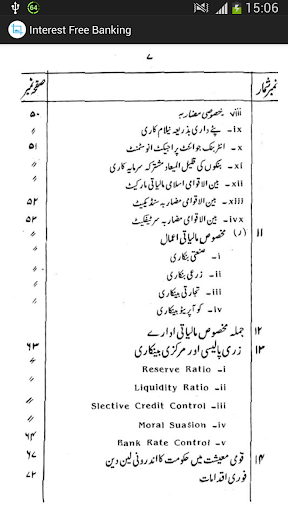 64
15:06
Interest Free Banking
۷
نمبر شمار
صفحہ نمبر
viii خصوصی مضاربہ ۵۰
ix- پٹے داری بذریعہ نیلام کاری ״
x- انٹر بنک جوائنٹ پراجیکٹ انوسٹمنٹ ۵۱
xi- بنکوں کی قلیل المیعاد مشترکہ سرمایہ کاری ״
xii- بین الاقوامی اسلامی مالیاتی مارکیٹ ״
xiii- بین الاقوامی مضاربہ سنڈیکیٹ ۵۲
xiv- بین الاقوامی مضاربہ سرٹیفکیٹ ۵۳
۱۱ (ر) مخصوص مالیاتی اعمال ״
i- صنعتی بنکاری ״
ii- زرعی بنکاری ״
iii- تجارتی بینکاری ״
iv- کوآپریٹو بنکاری ״
۱۲ جملہ مخصوص مالیاتی ادارے ״
۱۳ زری پالیسی اور مرکزی بینکاری ۶۳
Reserve Ratio -i ״
Liquidity Ratio -ii ״
Slective Credit Control -iii ״
Moral Suasion -iv ״
Bank Rate Control -v ۶۴
۱۴ قومی معیشت میں حکومت کا اندرونی لین دین ۶۷
فوری اقدامات ۷۲